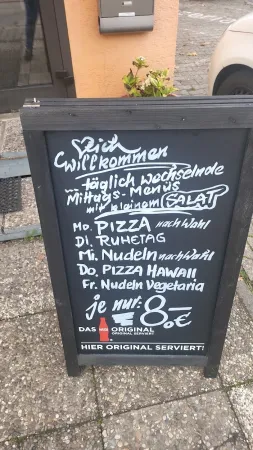 Herzlich
willkommen
... täglich wechselnde
Mittags-Menüs
mit kleinem SALAT
Mo. PIZZA nach Wahl
Di. RUHETAG
Mi. Nudeln nach Wahl
Do. PIZZA HAWAII
Fr. Nudeln Vegetaria
je nur: 8.-€
DAS ORIGINAL
ORIGINAL SERVIERT
HIER ORIGINAL SERVIERT!